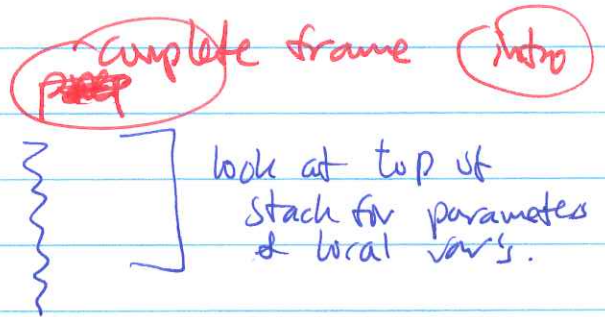 complete frame intro
look at top of
stack for parameters
& local var's.